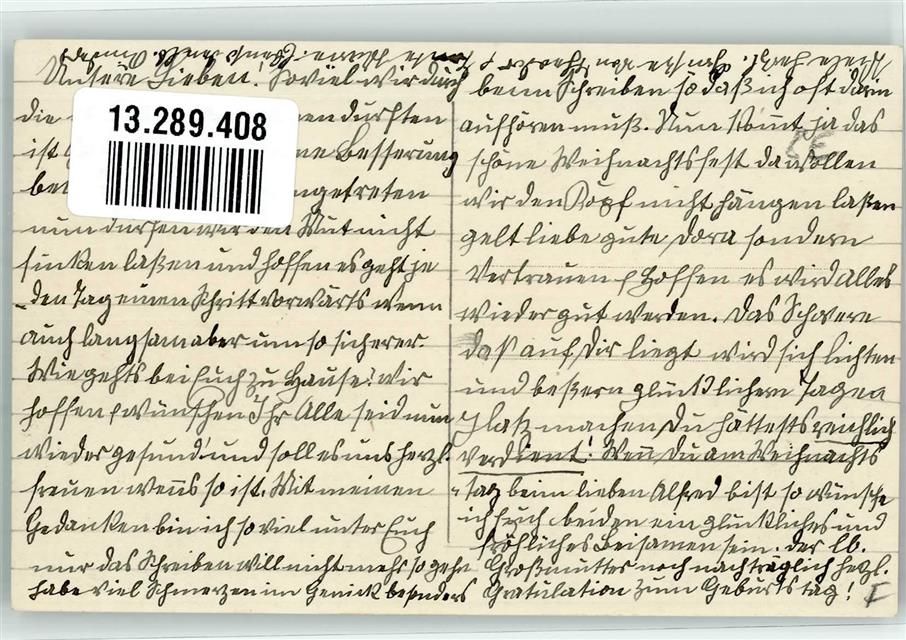 Unsere Lieben! Soviel wir durch
die
13.289.408
nen durften
ist
ne Besserung
bei
ngetreten
nun dürfen wir den Mut nicht
sinken laßen und hoffen es geht je
den Tag einen Schritt vorwärts wenn
auch langsam aber um so sicherer.
Wie gehts bei Euch zu Hause? Wir
hoffen & wünschen Ihr Alle seid nun
wieder gesund und soll es uns herzl.
freuen wenns so ist. Mit meinen
Gedanken bin ich so viel unter Euch
nur das Schreiben will nicht mehr so gehn
habe viel Schmerzen im Genick besonders
beim Schreiben so daß ich oft darin
aufhören muß. Nun kommt ja das
schöne Weihnachtsfest da wollen
wir den Kopf nicht hängen laßen
gelt liebe gute Dora sondern
Vertrauen & Hoffen es wird Alles
wieder gut werden. Das Schwere
das auf Dir liegt wird sich lichten
und beßern glücklichern Tagen
Platz machen Du hättests reichlich
verdient! Wenn Du am Weihnachts
tag beim lieben Alfred bist so wünsche
ich Euch beiden ein glückliches und
fröhliches Beisamensein. Der lb.
Großmutter noch nachträglich herzl.
Gratulation zum Geburtstag!